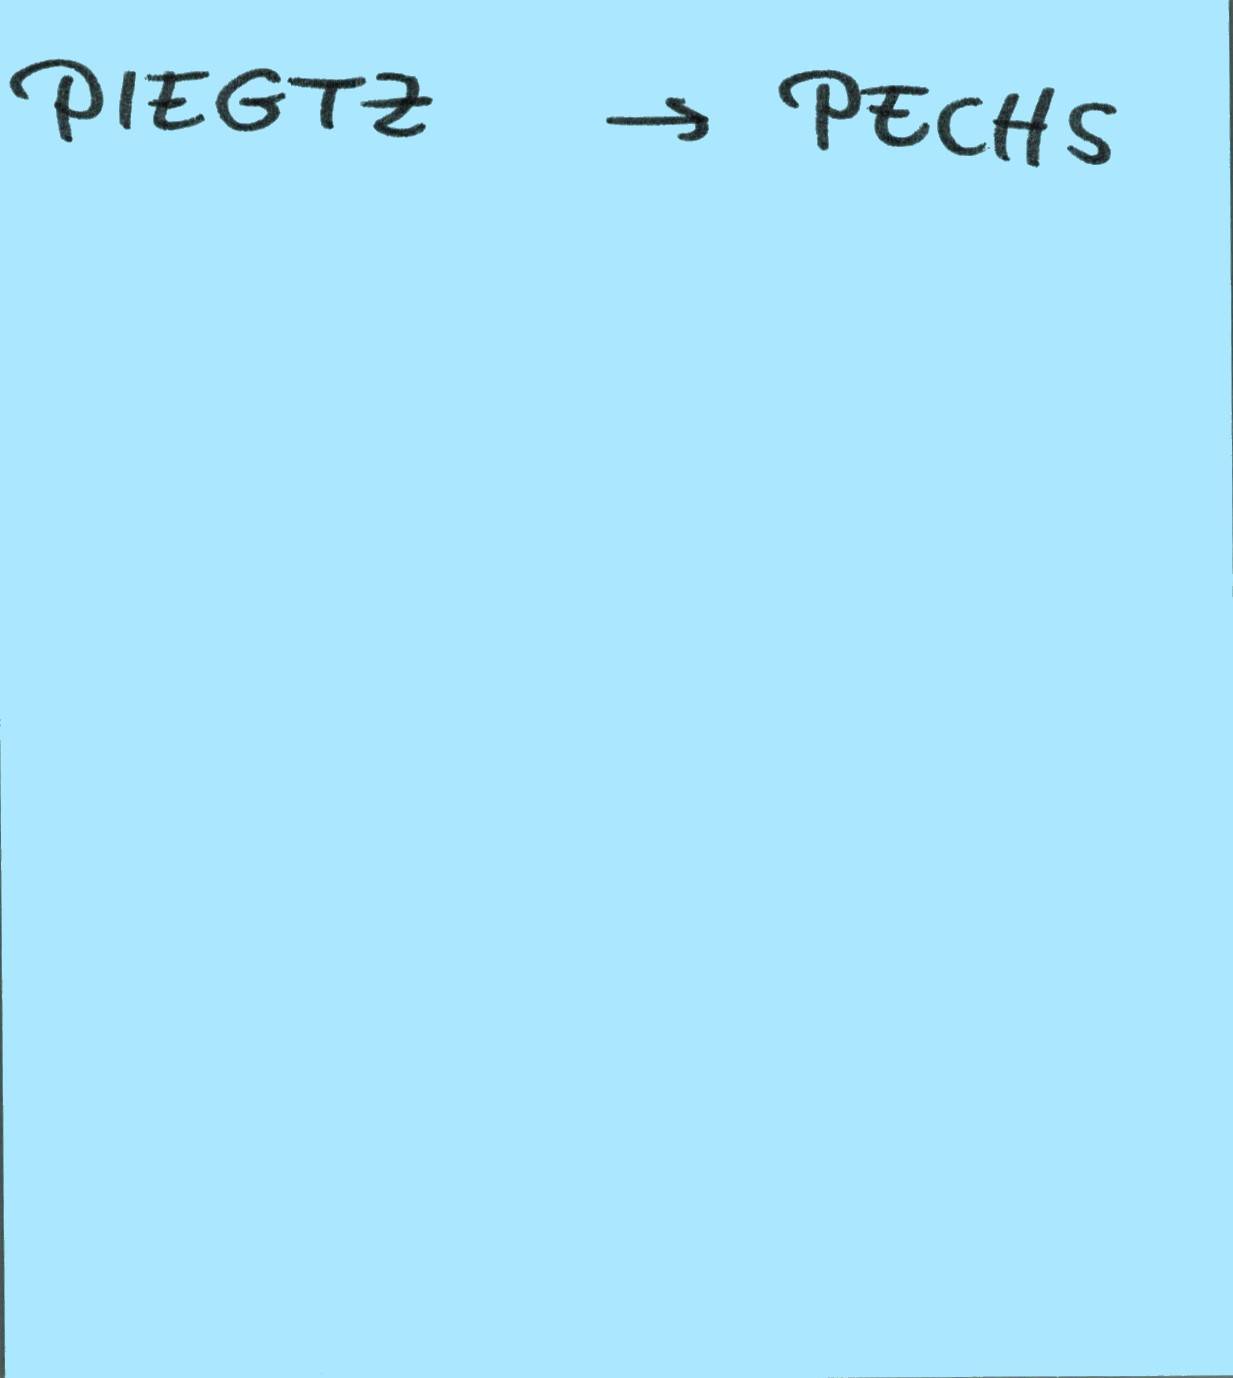 PIEGTZ → PECHS